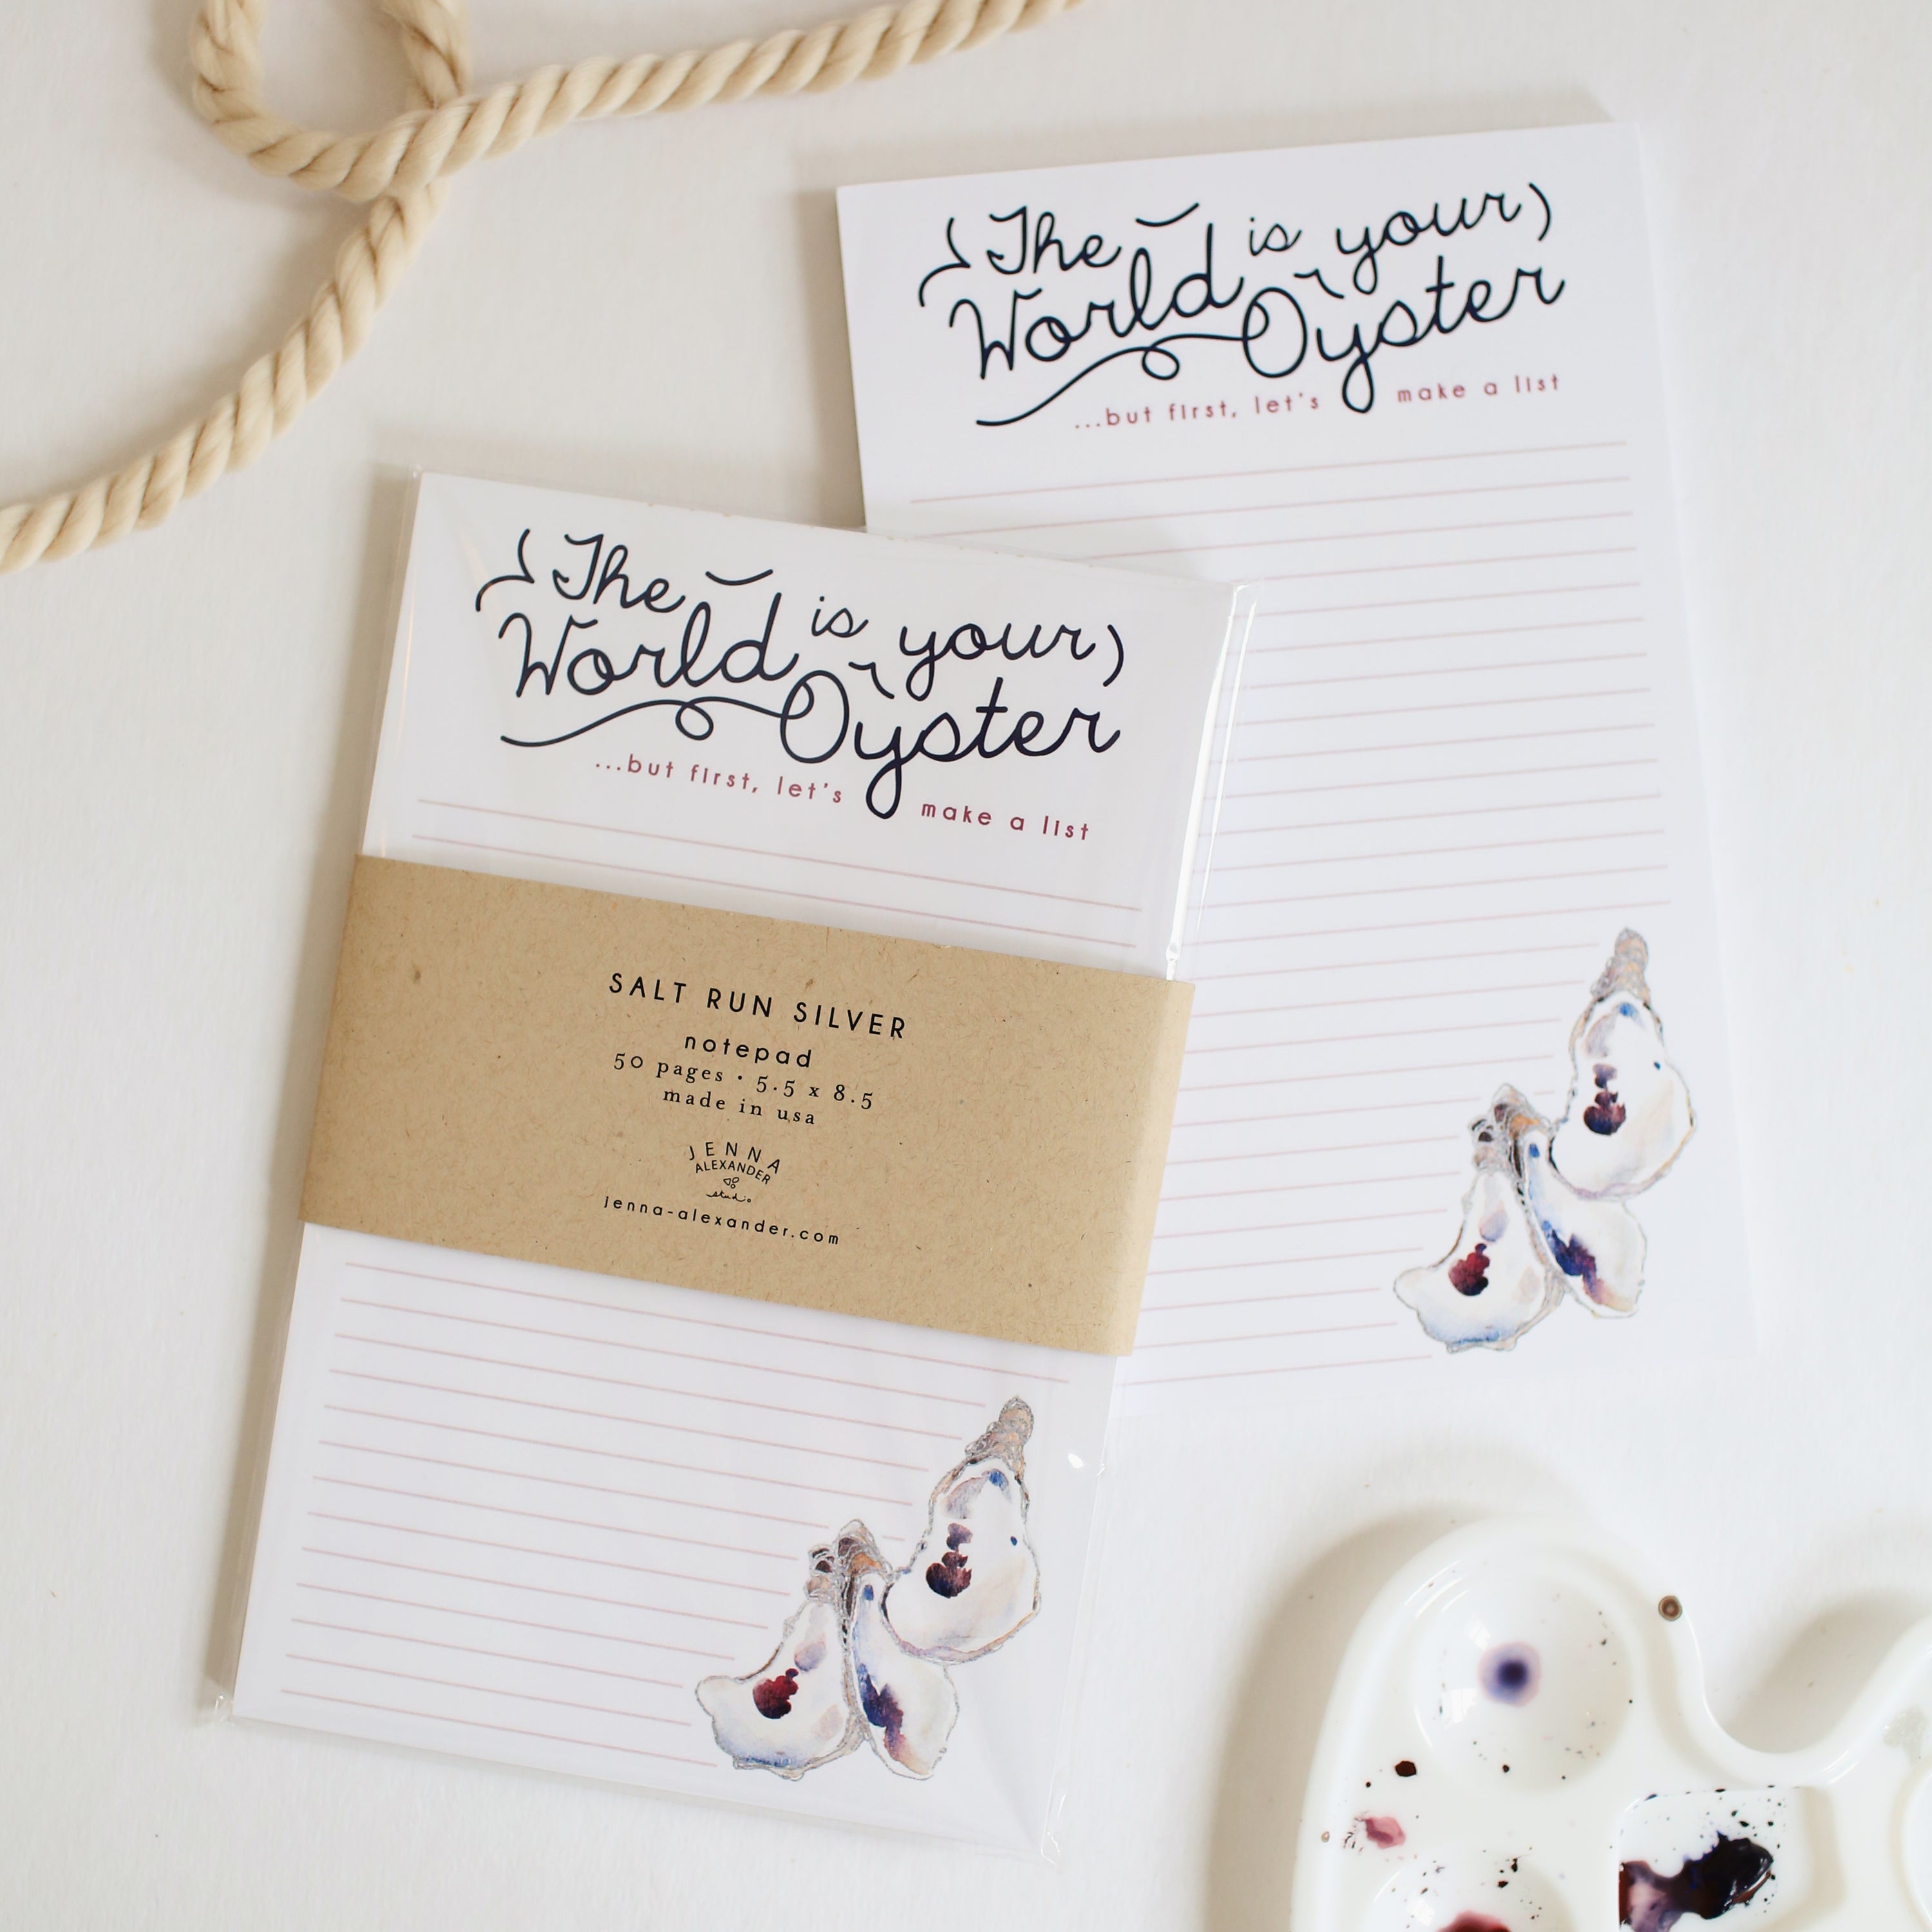 The
World is your
Oyster
...but first, let's make a list
SALT RUN SILVER
notepad
50 pages • 5.5 x 8.5
made in usa
JENNA
ALEXANDER
studio
jenna-alexander.com
The
World is your
Oyster
...but first, let's make a list